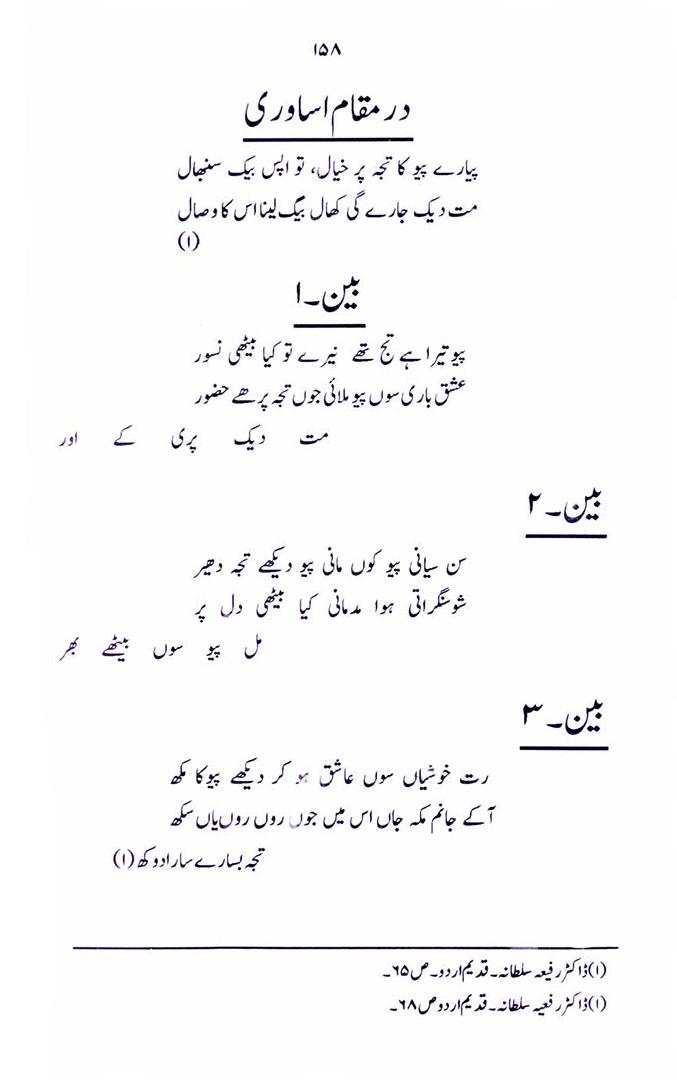 ۱۵۸
در مقام اساوری
پیارے پیو کا تجہ پر خیال، تو اپس بیک سنبھال
مت دیک جارے گی کھال بیگ لینا اس کا وصال
(۱)
بین۔۱
پیو تیرا ہے تج تھے نیرے تو کیا بیٹھی نسور
عشق باری سوں پیو ملائی جوں تجہ پر ھے حضور
مت دیک پری کے اور
بین۔۲
سن سیانی پیو کوں مانی پیو دیکھے تجہ دھیر
شوسنگراتی ہوا مدمانی کیا بیٹھی دل پر
مل پیو سوں بیٹھے بھر
بین۔۳
رت خوشیاں سوں عاشق ہو کر دیکھے پیوکا مکھ
آکے جانم مکہ جاں اس میں جوں روں روں یاں سکھ
تجہ بسارے سارا دوکھ (۱)
(۱) ڈاکٹر رفیعہ سلطانہ۔ قدیم اردو۔ ص ۶۵۔
(۱) ڈاکٹر رفعیہ سلطانہ۔ قدیم اردو ص ۶۸۔